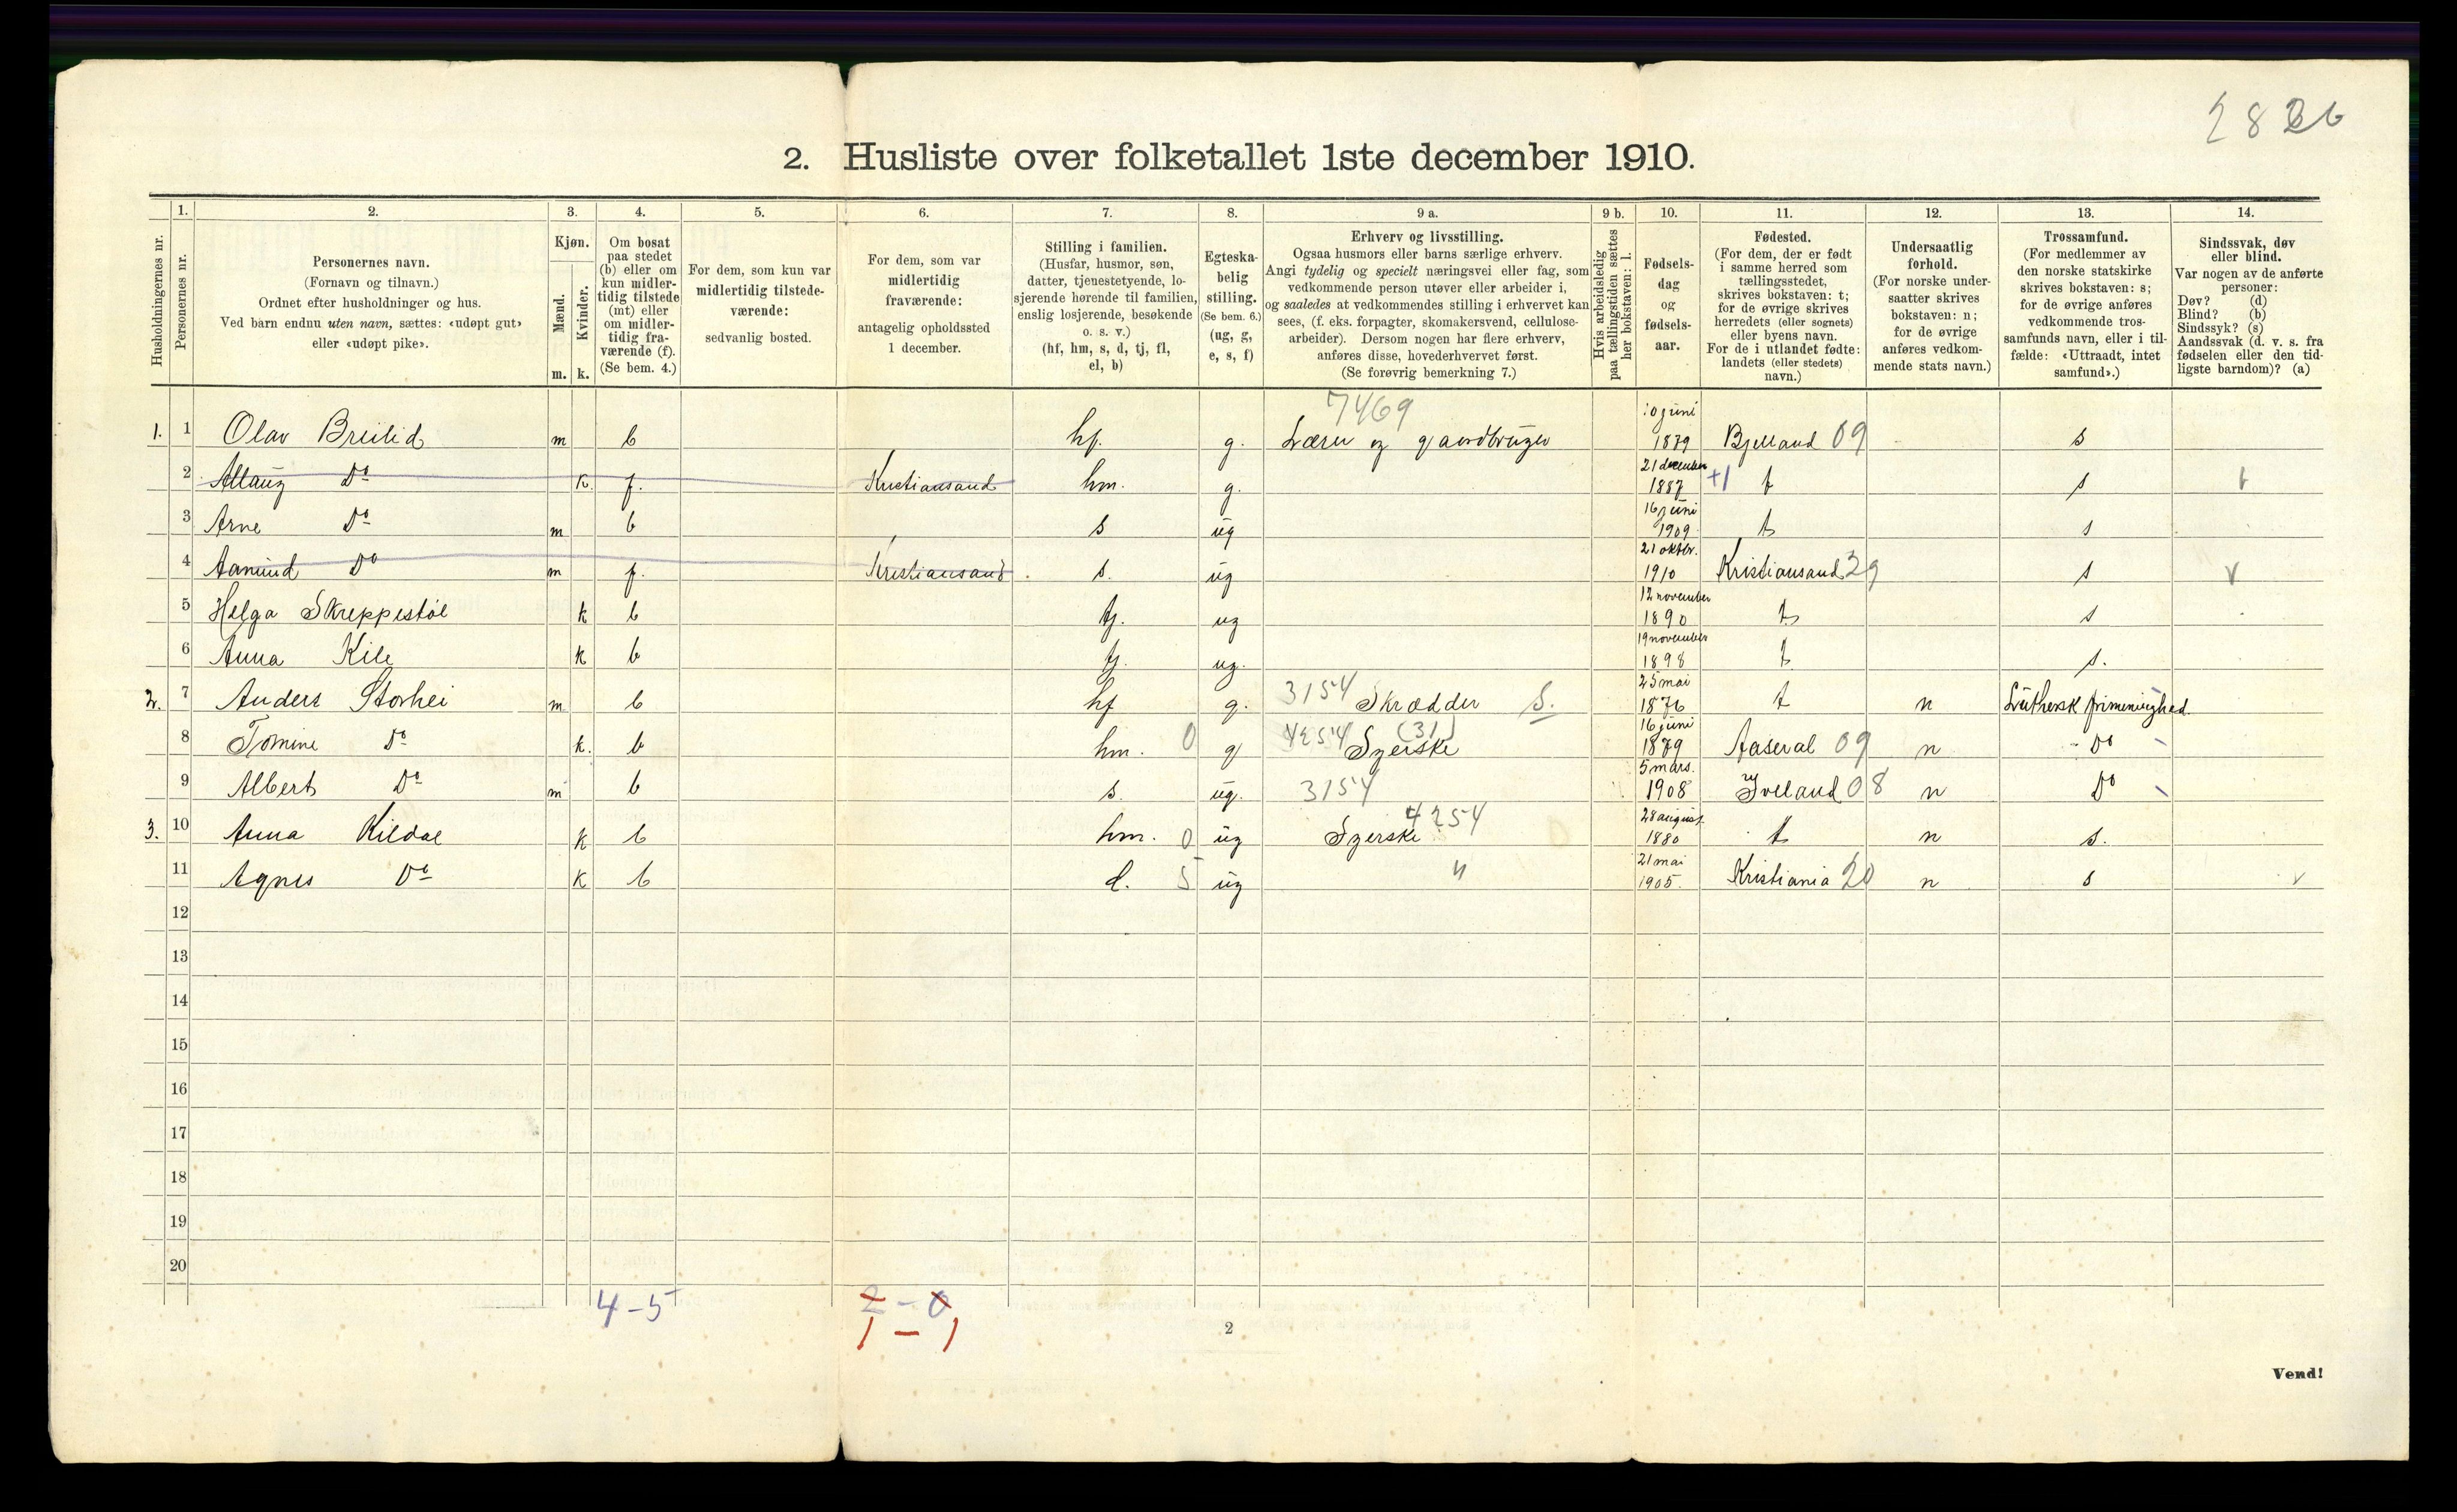 2826
2. Husliste over folketallet 1ste december 1910.
Husholdningernes nr.
1.
Personernes nr.
2.
Personernes navn.
(Fornavn og tilnavn.)
Ordnet efter husholdninger og hus.
Ved barn endnu uten navn, sættes: «udøpt gut»
eller «udøpt pike».
3.
Kjøn.
Mænd.
Kvinder.
m. k.
4.
Om bosat
paa stedet
(b) eller om
kun midler-
tidig tilstede
(mt) eller
om midler-
tidig fra-
værende (f).
(Se bem. 4.)
5.
For dem, som kun var
midlertidig tilstede-
værende:
sedvanlig bosted.
6.
For dem, som var
midlertidig
fraværende:
antagelig opholdssted
1 december.
7.
Stilling i familien.
(Husfar, husmor, søn,
datter, tjenestetyende, lo-
sjerende hørende til familien,
enslig losjerende, besøkende
o. s. v.)
(hf, hm, s, d, tj, fl,
el, b)
8.
Egteska-
belig
stilling.
(Se bem. 6.)
(ug, g,
e, s, f)
9 a.
Erhverv og livsstilling.
Ogsaa husmors eller barns særlige erhverv.
Angi tydelig og specielt næringsvei eller fag, som
vedkommende person utøver eller arbeider i,
og saaledes at vedkommendes stilling i erhvervet kan
sees, (f. eks. forpagter, skomakersvend, cellulose-
arbeider). Dersom nogen har flere erhverv,
anføres disse, hovederhvervet først.
(Se forøvrig bemerkning 7.)
9 b.
Hvis arbeidsledig
paa tællingstiden sættes
her bokstaven: l.
10.
Fødsels-
dag
og
fødsels-
aar.
11.
Fødested.
(For dem, der er født
i samme herred som
tællingsstedet,
skrives bokstaven: t;
for de øvrige skrives
herredets (eller sognets)
eller byens navn.
For de i utlandet fødte:
landets (eller stedets)
navn.)
12.
Undersaatlig
forhold.
(For norske under-
saatter skrives
bokstaven: n;
for de øvrige
anføres vedkom-
mende stats navn.)
13.
Trossamfund.
(For medlemmer av
den norske statskirke
skrives bokstaven: s;
for de øvrige anføres
vedkommende tros-
samfunds navn, eller i til-
fælde: «Uttraadt, intet
samfund».)
14.
Sindssvak, døv
eller blind.
Var nogen av de anførte
personer:
Døv? (d)
Blind? (b)
Sindssyk? (s)
Aandssvak (d. v. s. fra
fødselen eller den tid-
ligste barndom)? (a)
7469
1. 1 Olav Breilid m b hf. g. Lærer og gaardbruger juni 1879 Bjelland 09 s
2 Allaug Do k. f. Kristiansand hm. g. 21 december 1887 +1 t s
3 Arne Do m b s ug 16 juni 1909 t s
4 Aamund Do m f. Kristiansand s. ug 21 oktbr. 1910 Kristiansand 39 s v
5 Helga Skreppestøl k b tj. ug 12 november 1890 t s
6 Anna Kile k b tj. ug. 19 november 1898 t s.
2. 7 Anders Storhei m b hf g. 3154 Skrædder S. 25 mai 1876 t n Luthersk frimenighed.
8 Tomine Do k. b hm. 0 g 4254 (31) Syerske 16 juni 1879 Aaseral 09 n Do
9 Albert Do m b s. ug. 3154 5 mars. 1908 Iveland 08 n Do
3. 10 Anna Kildal k b hm. 0 ug Syerske 4254 28 august. 1880 t n s.
11 Agnes Do k b d. 5 ug " 21 mai 1905. Kristiania 20 n s v
12
13
14
15
16
17
18
19
20
4-5
2-0
1-1
2
Vend!